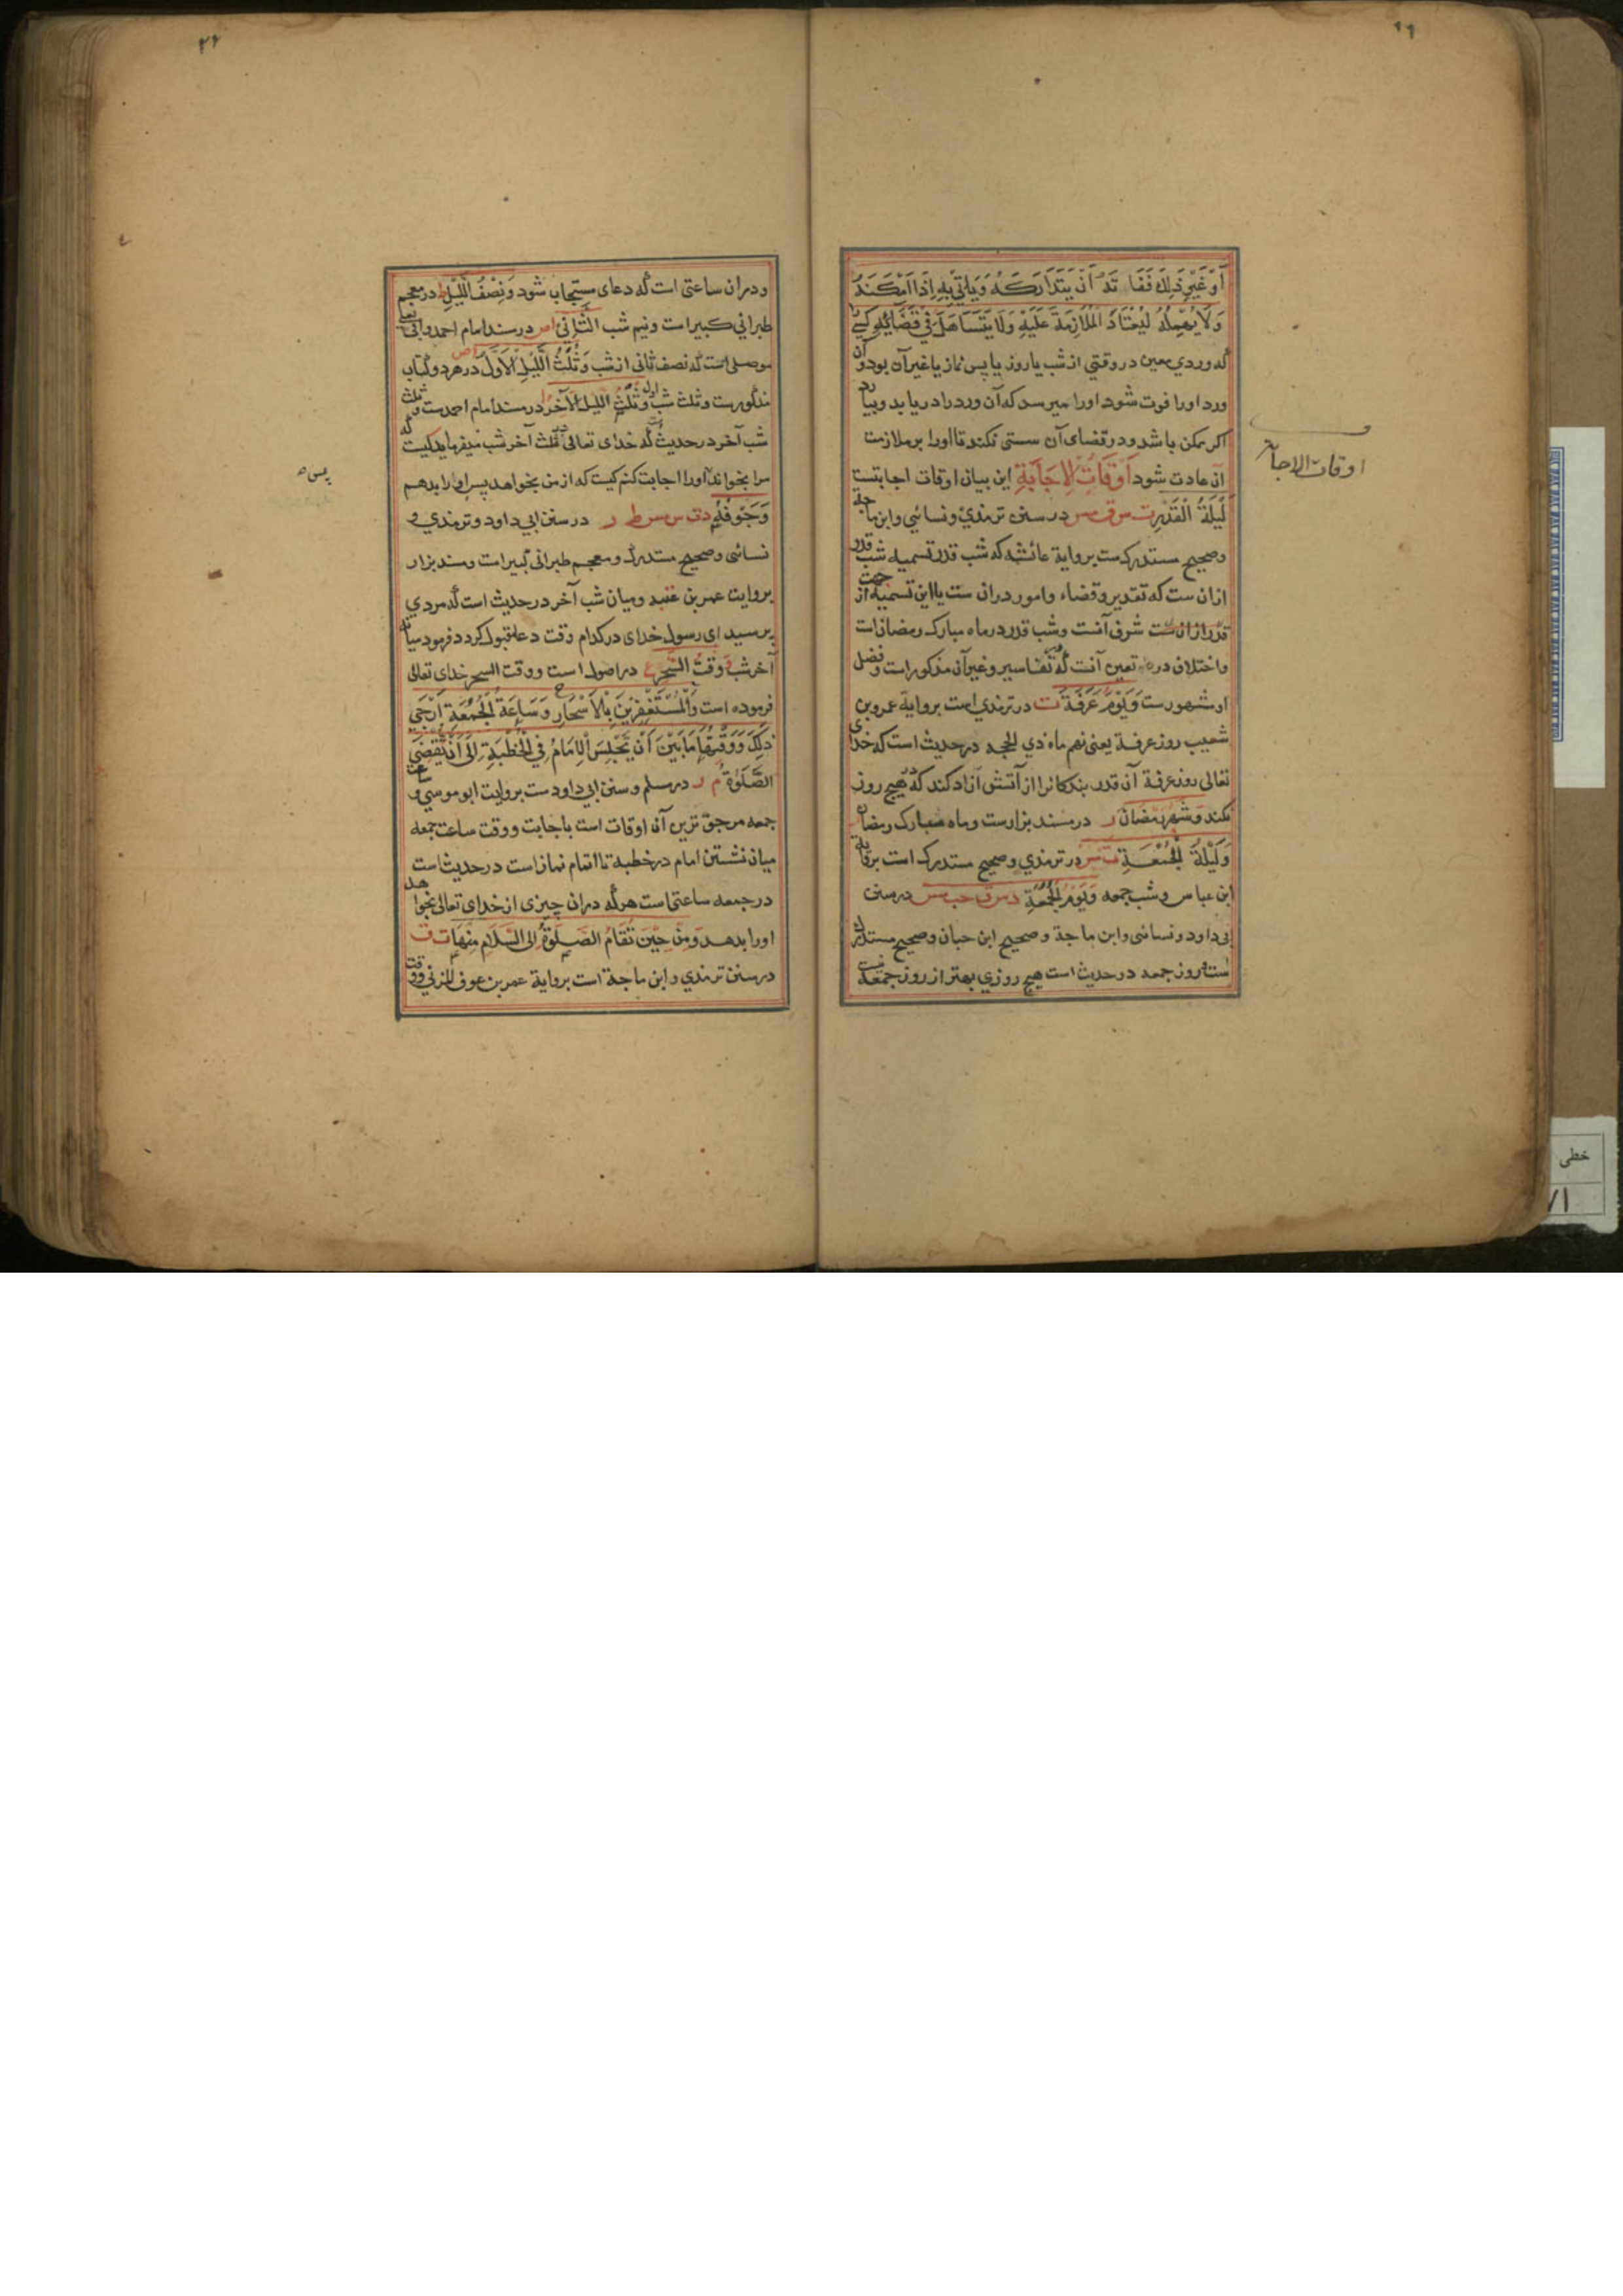 ۲۶
أَوْ غَيْرِ ذٰلِكَ فَفَاتَهُ أَنْ يَتَدَارَكَهُ وَيَأْتِيَ بِهِ إِذَا أَمْكَنَهُ
وَلَا يُهْمِلَهُ لِيَعْتَادَ الْمُلَازَمَةَ عَلَيْهِ وَلَا يَتَسَاهَلَ فِي قَضَائِهِ کسی را
که وردی معین در وقتی از شب یا روز یا پس نماز یا غیر آن بود و آن
ورد او را فوت شود او را میرسد که آن ورد را دریابد و بیارد
اگر ممکن باشد و در قضای آن سستی نکند تا او را بر ملازمت
آن عادت شود أَوْقَاتُ الْإِجَابَةِ این بیان اوقات اجابتست
اوقات الاجابة
لَيْلَةُ الْقَدْرِ ت س ق مس در سنن ترمذي و نسائي و ابن ماجة
و صحیح مستدرک ست بروایة عائشه که شب قدر تسمیه شب قدر
ازان ست که تقدیر و قضاء و امور دران ست یا این تسمیه از جهت
قدر ازان ست شرف آنست و شب قدر در ماه مبارک رمضان است
و اختلاف در تعین آنست که تفاسیر و غیر آن مذکور است و فضل
او مشهورست وَيَوْمُ عَرَفَةَ ت در ترمذي است بروایة عمرو بن
شعیب روز عرفة یعنی نهم ماه ذي الحجه در حدیث است که خدای
تعالی روز عرفة آن قدر بندکانرا از آتش آزاد کند که در هیچ روز
نکند وَشَهْرُ رَمَضَانَ ر در مسند بزارست و ماه مبارک رمضان
وَلَيْلَةُ الْجُمُعَةِ ت مس در ترمذي و صحیح مستدرک است بروایة
ابن عباس و شب جمعه وَيَوْمُ الْجُمُعَةِ د س ق حب مس در سنن
ابی داود و نسائی و ابن ماجة و صحیح ابن حبان و صحیح مستدرک
ست و روز جمعه در حدیث است هیچ روزي بهتر از روز جمعة نیست
و دران ساعتی است که دعای مستجاب شود وَنِصْفُ اللَّيْلِ ط در معجم
طبراني کبیر است و نیم شب الثَّانِي ا ص در مسند امام احمد و ابی یعلی
موصلی است که نصف ثانی از شب وَثُلُثُ اللَّيْلِ الْأَوَّلُ ا ص در هر دو کتاب
مذکورست و ثلث شب اول وَثُلُثُ اللَّيْلِ الْآخِرُ ا در مسند امام احمد ست و ثلث
شب آخر در حدیث است که خدای تعالی در ثلث آخر شب میفرماید کیست که
مرا بخواند تا او را اجابت کنم کیست که از من بخواهد پس او را بدهم
پس ه
وَجَوْفُهُ د ت س مس ط ر در سنن ابي داود و ترمذي و
نسائی و صحیح مستدرک و معجم طبرانی کبیر است و مسند بزار
بروایت عمر بن عنبد و میان شب آخر در حدیث است که مردي
پرسید ای رسول خدای در کدام وقت دعا قبول کردد فرمود میانه
آخر شب وَقْتُ السَّحَرِ ع در اصول است و وقت السحر خدای تعالی
فرموده است وَالْمُسْتَغْفِرِينَ بِالْأَسْحَارِ وَسَاعَةُ الْجُمُعَةِ أَرْجَى
ذٰلِكَ وَوَقْتُهَا مَا بَيْنَ أَنْ يَجْلِسَ الْإِمَامُ فِي الْخُطْبَةِ إِلَى أَنْ تُقْضَى
الصَّلَوٰةُ م د در مسلم و سنن ابي داود ست بروایت ابو موسي و ساعت
جمعه مرجو ترین آن اوقات است باجابت و وقت ساعت جمعه
میان نشستن امام در خطبه تا اتمام نماز است در حدیث است
در جمعه ساعتی است هر که دران چیزی از خدای تعالی بخواهد
او را بدهد وَمِنْ حِينِ تُقَامُ الصَّلَوٰةُ إِلَى السَّلَامِ مِنْهَا ت ق
در سنن ترمذي و ابن ماجة است بروایة عمر بن عوف المزني و وقت
خطی
۷۱